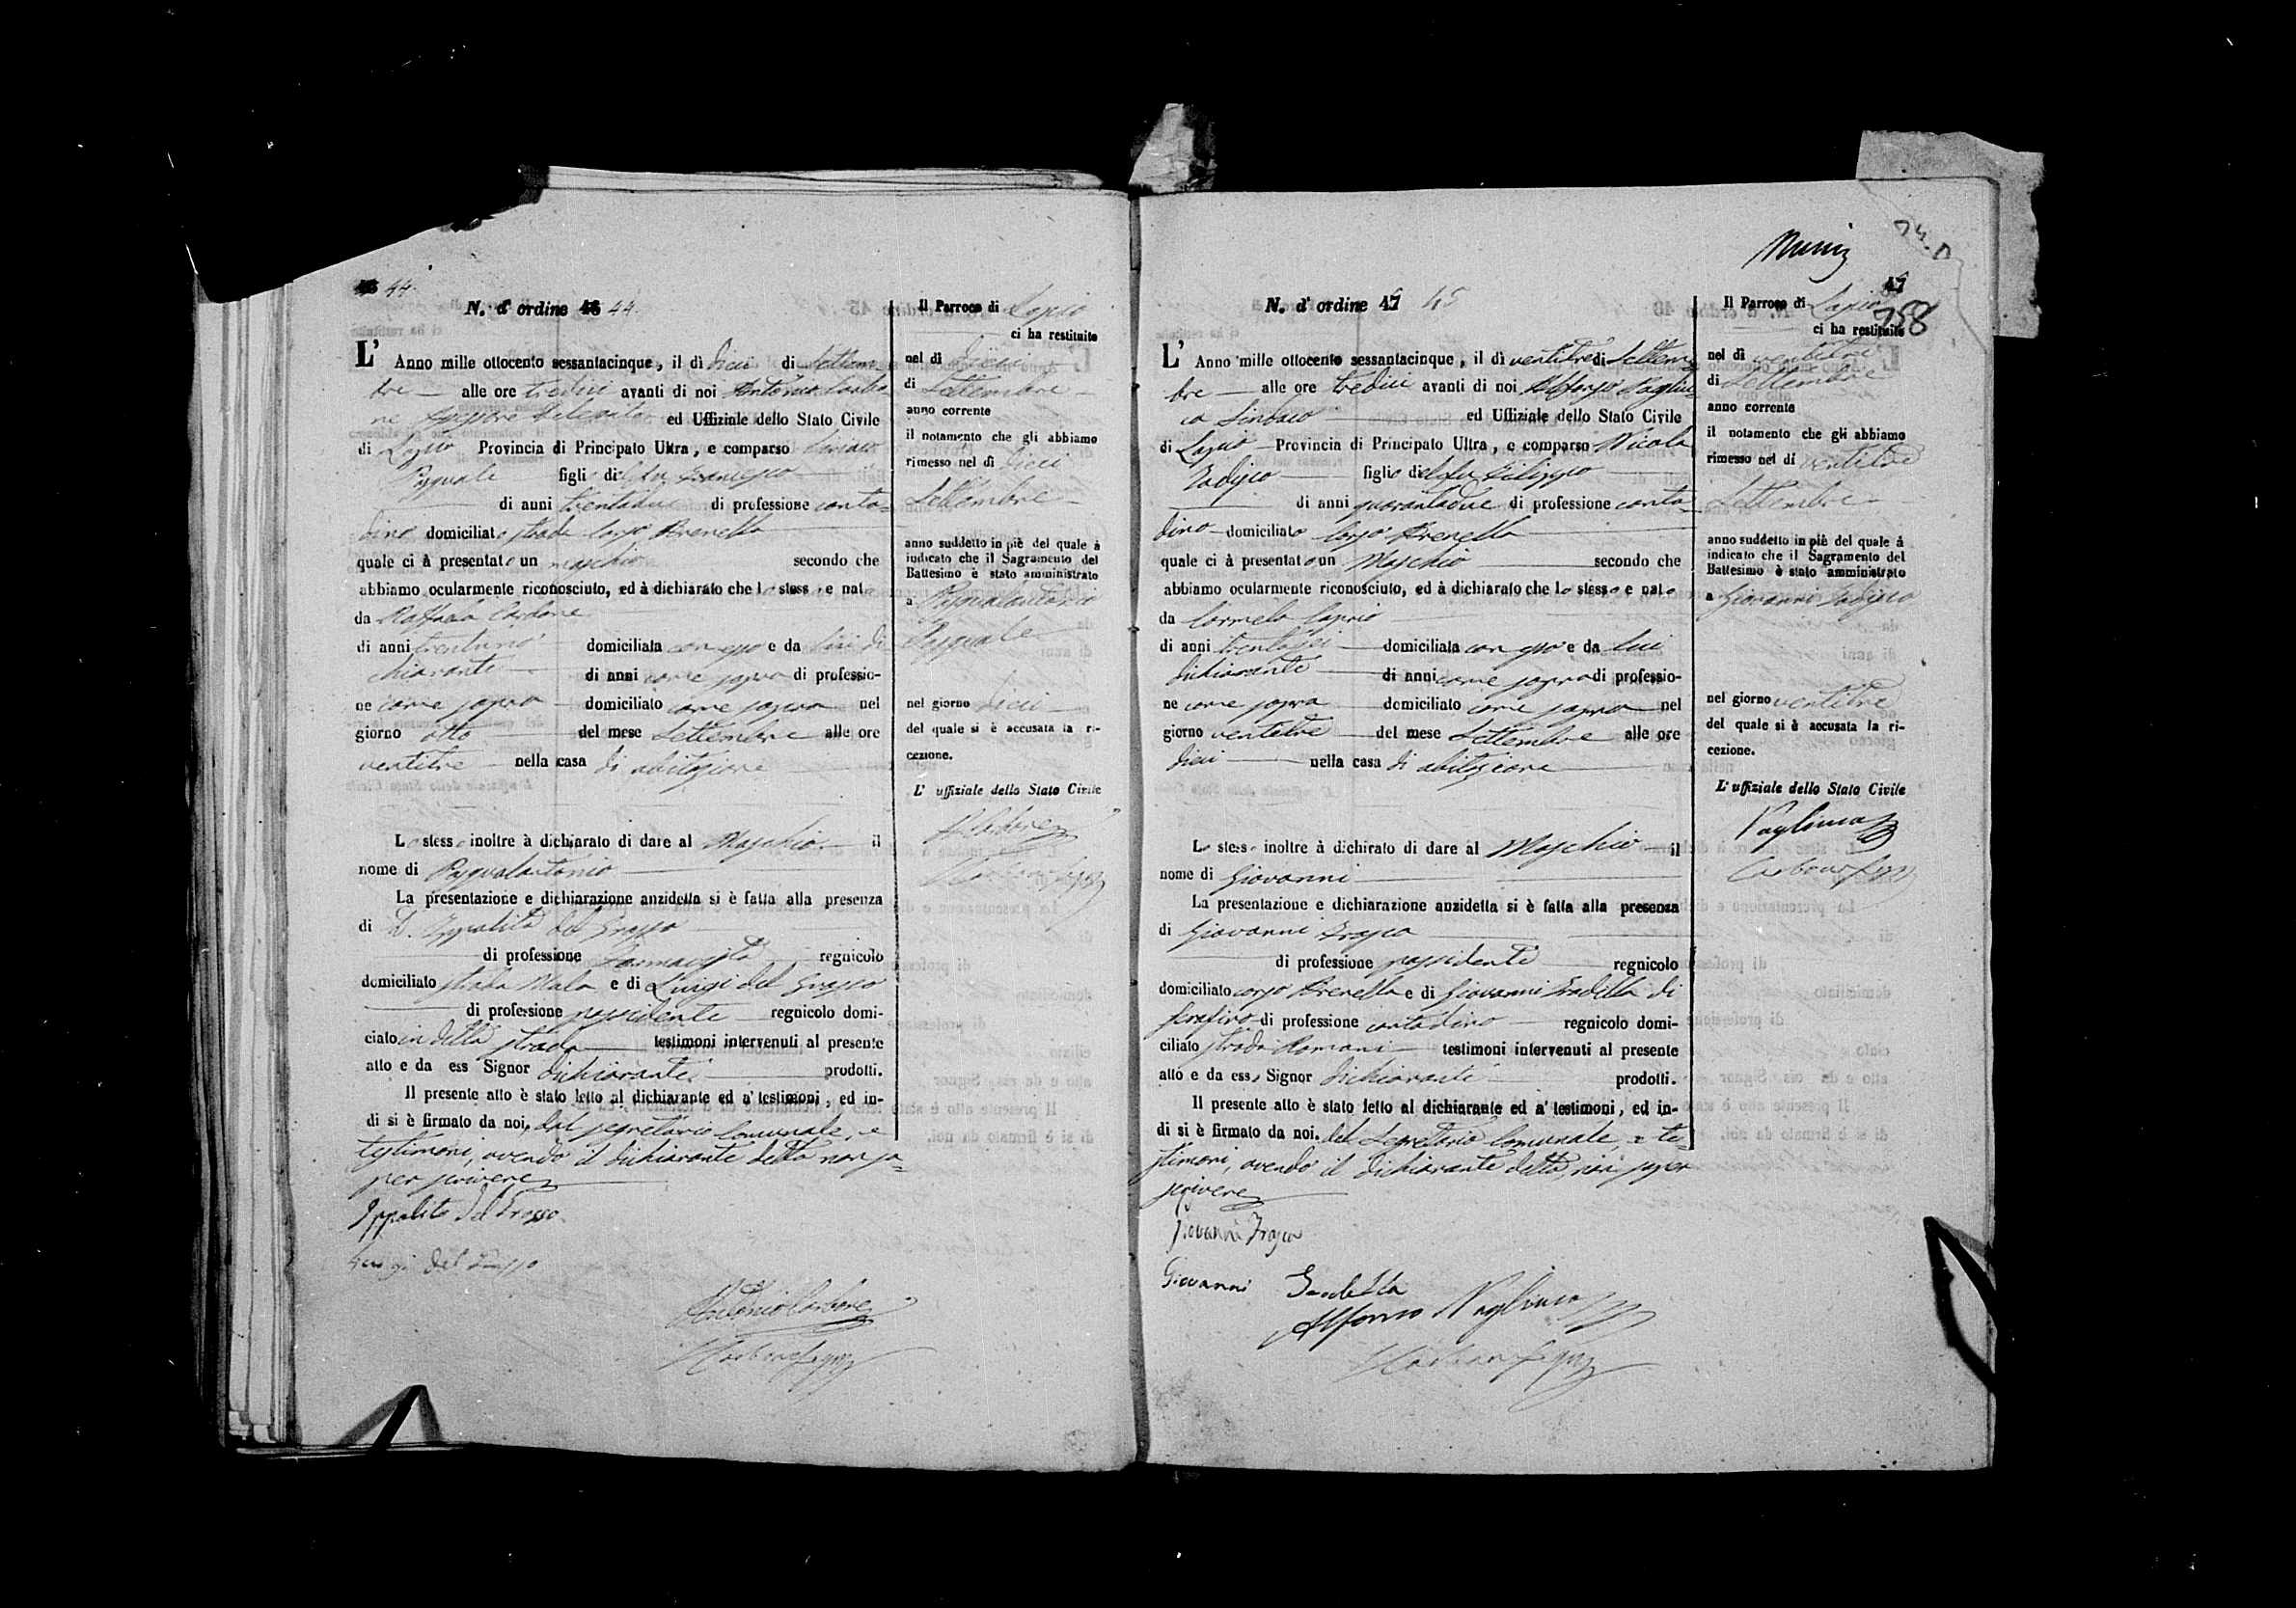 44.
N. d' ordine 46 44.
L' Anno mille ottocento sessantacinque, il dì dieci di Settem-
bre alle ore tredici avanti di noi Antonio Carbo-
ne Assessore Delegato ed Uffiziale dello Stato Civile
di Lapio Provincia di Principato Ultra, e comparso
Pasquale figlio del fu Francesco
di anni trentadue di professione conta-
dino domiciliato strada largo Brenella
quale ci à presentato un maschio secondo che
abbiamo ocularmente riconosciuto, ed à dichiarato che lo stesso e nato
da Raffaela Carbone
di anni trentuno domiciliata con esso e da lui di
chiarante di anni come sopra di professio-
ne come sopra domiciliato come sopra nel
giorno otto del mese Settembre alle ore
ventitre nella casa di abitazione
Lo stesso inoltre à dichiarato di dare al Maschio il
nome di Pasqualantonio
La presentazione e dichiarazione anzidetta si è fatta alla presenza
di D. Ippolito del Grosso
di professione Farmacista regnicolo
domiciliato strada Mala e di Luigi del Grosso
di professione possidente regnicolo domi-
ciato in detta strada testimoni intervenuti al presente
atto e da ess Signor dichiarante prodotti.
Il presente atto è stato letto al dichiarante ed a' testimoni, ed in-
di si è firmato da noi, dal segretario Comunale, e
testimoni, avendo il dichiarante detto non sa-
per scrivere
Ippolito del Grosso
Luigi del Grosso
Antonio Carbone
Il Parroco di Lapio
ci ha restituito
nel dì dieci
di Settembre
anno corrente
il notamento che gli abbiamo
rimesso nel dì dieci
Settembre
anno suddetto in piè del quale à
indicato che il Sagramento del
Battesimo è stato amministrato
a Pasqualantonio
Pasquale
nel giorno dieci
del quale si è accusata la ri-
cezione.
L' uffiziale dello Stato Civile
A Carbone
N. d' ordine 47 45
L' Anno mille ottocento sessantacinque, il dì ventitre di Settem-
bre alle ore tredici avanti di noi Alfonso Vagliu-
ca Sindaco ed Uffiziale dello Stato Civile
di Lapio Provincia di Principato Ultra, e comparso Nicola
figlio del fu Filippo
di anni quarantadue di professione conta-
dino domiciliato largo Brenella
quale ci à presentato un Maschio secondo che
abbiamo ocularmente riconosciuto, ed à dichiarato che lo stesso e nato
da Carmela Caprio
di anni trentasei domiciliata con esso e da lui
dichiarante di anni come sopra di professio-
ne come sopra domiciliato come sopra nel
giorno ventitre del mese Settembre alle ore
dieci nella casa di abitazione
Lo stesso inoltre à dichirato di dare al Maschio il
nome di Giovanni
La presentazione e dichiarazione anzidetta si è fatta alla presenza
di Giovanni
di professione possidente regnicolo
domiciliato largo Brenella e di Giovanni Gradella di
Serafino di professione contadino regnicolo domi-
ciliato strada Romani testimoni intervenuti al presente
atto e da esso Signor dichiarante prodotti.
Il presente atto è stato letto al dichiarante ed a' testimoni, ed in-
di si è firmato da noi, del Segretario Comunale, e te-
stimoni, avendo il dichiarante detto non saper
scrivere
Giovanni
Giovanni
Alfonso
47
158
Il Parroco di Lapio
ci ha restituito
nel dì ventitre
di Settembre
anno corrente
il notamento che gli abbiamo
rimesso nel dì ventitre
Settembre
anno suddetto in piè del quale à
indicato che il Sagramento del
Battesimo è stato amministrato
a Giovanni
nel giorno ventitre
del quale si è accusata la ri-
cezione.
L' uffiziale dello Stato Civile